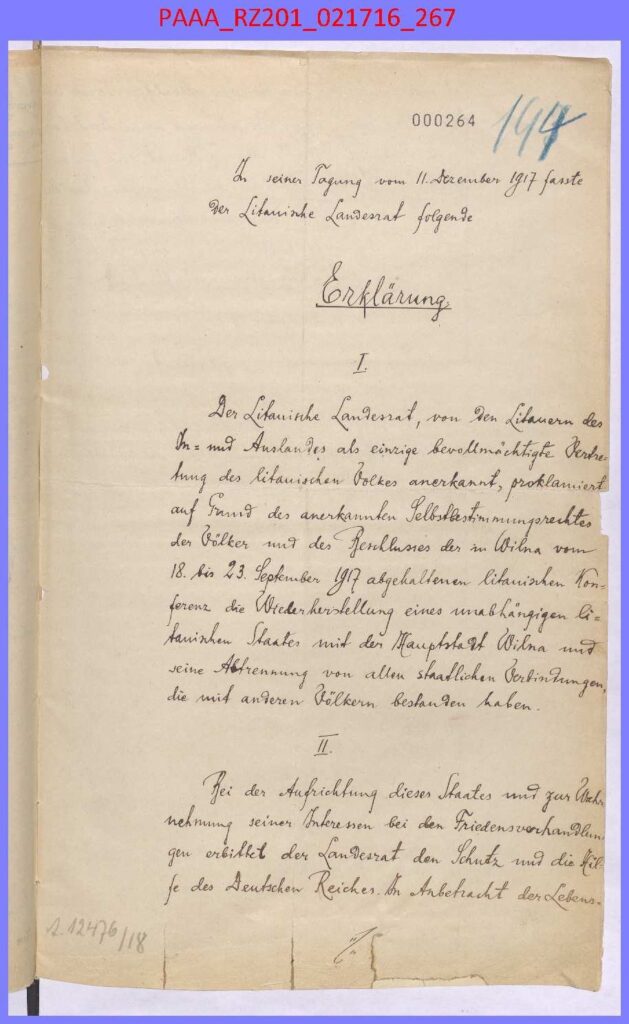 PAAA_RZ201_021716_267
000264
144
In seiner Tagung vom 11. Dezember 1917 fasste
der Litauische Landesrat folgende
Erklärung
I.
Der Litauische Landesrat, von den Litauern des
In- und Auslandes als einzige bevollmächtigte Vertre-
tung des litauischen Volkes anerkannt, proklamiert
auf Grund des anerkannten Selbstbestimmungsrechtes
der Völker und des Beschlusses der in Wilna vom
18. bis 23. September 1917 abgehaltenen litauischen Kon=
ferenz die Wiederherstellung eines unabhängigen li=
tauischen Staates mit der Hauptstadt Wilna und
seine Abtrennung von allen staatlichen Verbindungen,
die mit anderen Völkern bestanden haben.
II.
Bei der Aufrichtung dieses Staates und zur Wahr
nehmung seiner Interessen bei den Friedensverhandlun
gen erbittet der Landesrat den Schutz und die Hül-
fe des Deutschen Reiches. In Anbetracht der Lebens-
A. 12476/18